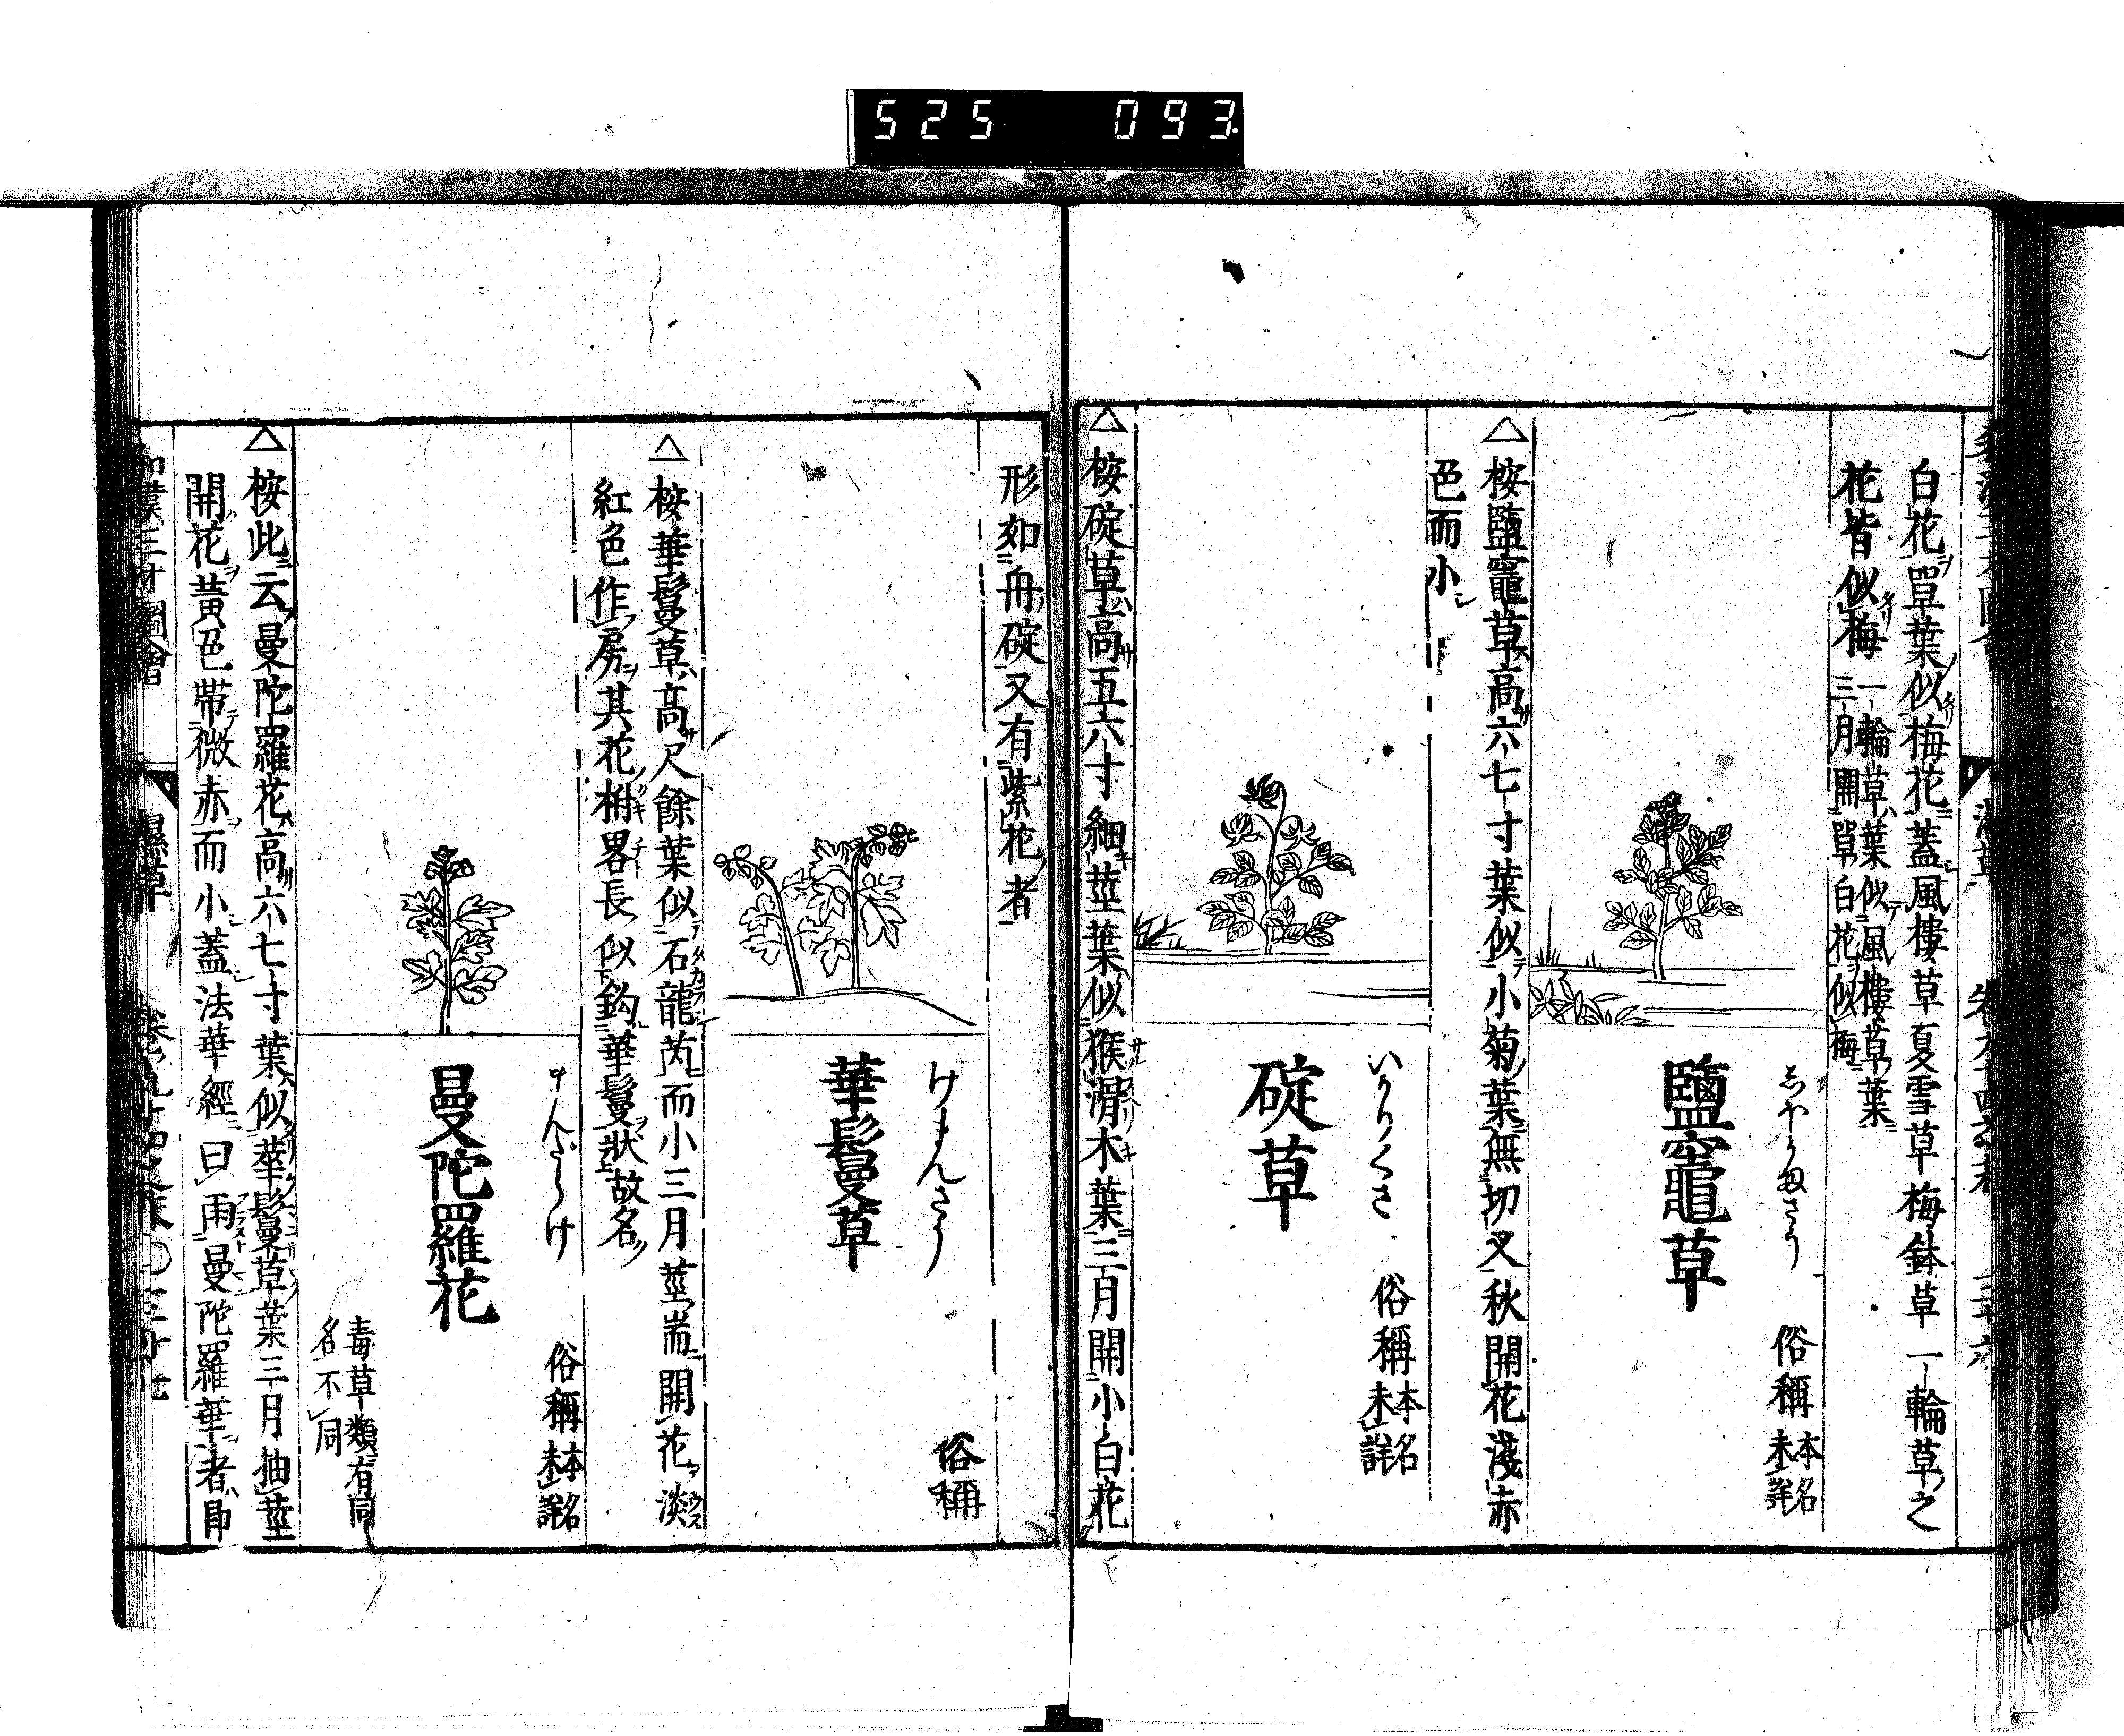 525 093
白花單葉似梅花蓋風樓草夏雪草梅鉢草一輪草之
花皆似梅
一輪草葉似風樓草葉
三月開單白花似梅
鹽竈草
俗稱
本名
未詳
△桉鹽竈草高六七寸葉似小菊葉無切叉秋開花淺赤
色而小
碇草
いかりくさ
俗稱
本名
未詳
△桉碇草高五六寸細莖葉似猴滑木葉三月開小白花
形如舟碇又有紫花者
華鬘草
けまんさう
俗稱
△桉華鬘草高尺餘葉似石龍芮而小三月莖耑開花淡
紅色作房其花柎畧長似鈎華鬘狀故名
曼陀羅花
俗稱
本名
未詳
毒草類有同
名不同
△桉此云曼陀羅花高六七寸葉似華鬘草葉三月抽莖
開花黃色帶微赤而小蓋法華經曰雨曼陀羅華者即
和漢三才圖會 濕草